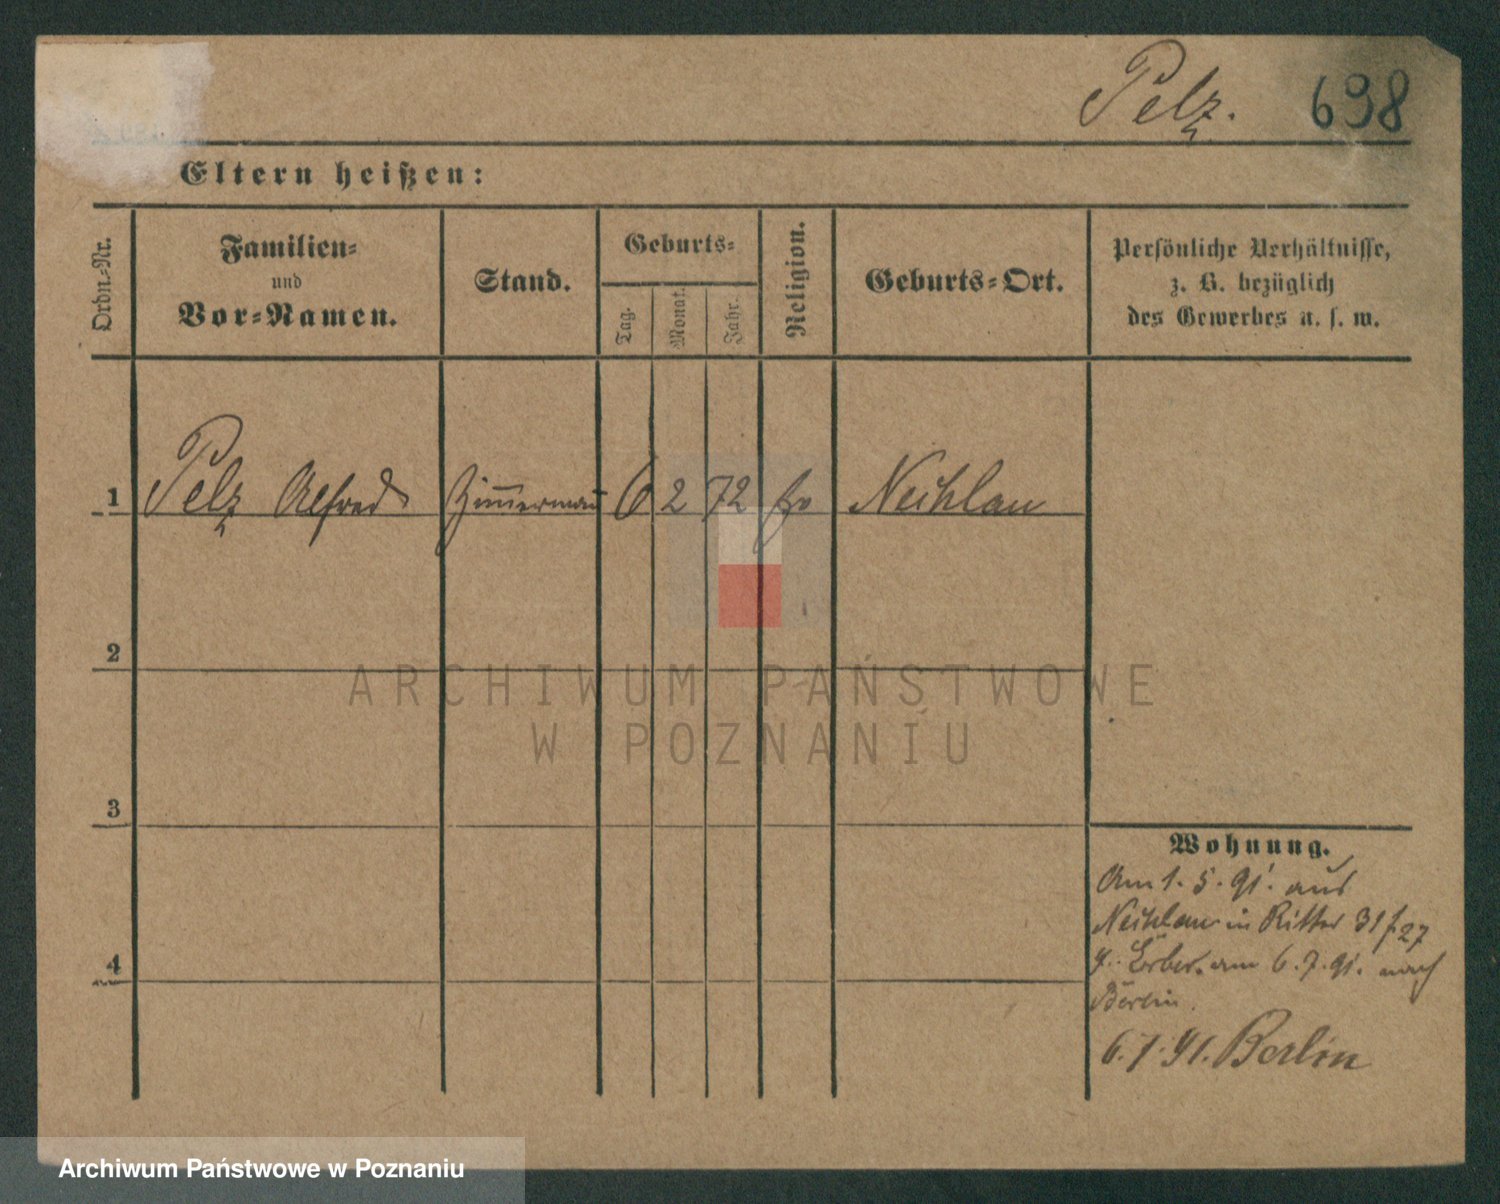 Pelz. 698
Eltern heißen:
Ordn.-Nr.
Familien-
und
Vor-Namen.
Stand.
Geburts-
Tag.
Monat.
Jahr.
Religion.
Geburts-Ort.
Persönliche Verhältnisse,
z. B. bezüglich
des Gewerbes u. s. w.
1 Pelz Alfred Zimmermann 6 2 72 Neihlau
2
3
4
Wohnung.
Am 1. 5. 91. aus
Neihlau in Ritter 31 27
am 6. 7. 91. nach
Berlin.
6. 7. 91. Berlin
ARCHIWUM PAŃSTWOWE
W POZNANIU
Archiwum Państwowe w Poznaniu